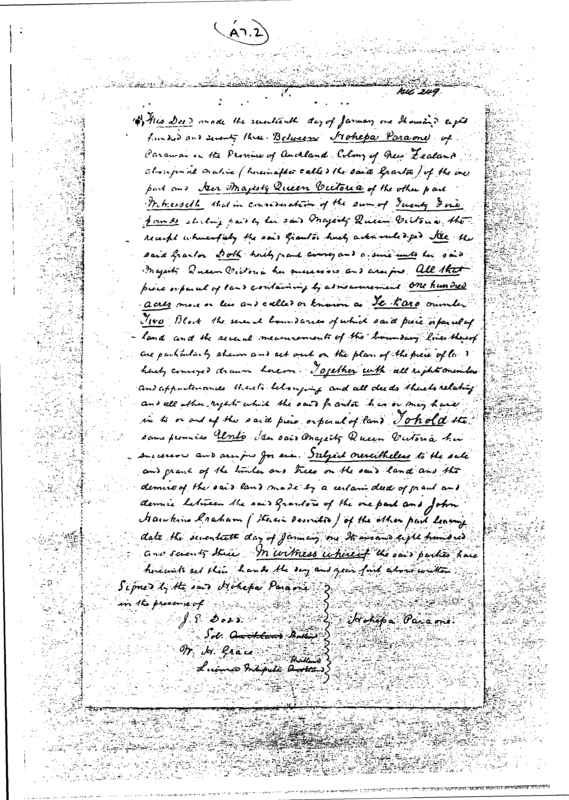 A7.2
249
This Deed made the seventeenth day of January one thousand eight
hundred and seventy three. Between Hohepa Paraone of
Parawai in the Province of Auckland Colony of New Zealand
aboriginal native (hereinafter called the said Grantor) of the one
part and Her Majesty Queen Victoria of the other part
Witnesseth that in consideration of the sum of Twenty Five
pounds sterling paid by her said Majesty Queen Victoria, the
receipt whereof the said Grantor hereby acknowledged He the
said Grantor Doth hereby grant convey and assure unto her said
Majesty Queen Victoria her successors and assigns All that
piece or parcel of land containing by admeasurement one hundred
acres more or less and called or known as Te Karo number
Two Block the several boundaries of which said piece or parcel of
land and the several measurements of the boundary lines thereof
are particularly shewn and set out on the plan of the piece of
hereby conveyed drawn hereon. Together with all rights
and appurtenances thereto belonging and all deeds thereto relating
and all other rights which the said Grantor has or may have
in to or out of the said piece or parcel of land To hold the
same premises Unto Her said Majesty Queen Victoria her
successors and assigns for ever. Subject nevertheless to the sale
and grant of the timber and trees on the said land and the
demise of the said land made by a certain deed of grant and
demise between the said Grantors of the one part and John
Hawkins Graham (therein described) of the other part bearing
date the seventeenth day of January one thousand eight hundred
and seventy three. In witness whereof the said parties have
hereunto set their hands the day and year first above written
Signed by the said Hohepa Paraone
in the presence of
J. E. Doss. Hohepa Paraone.
Sol: Auckland
W. H. Grace
Licensed Interpreter Auckland